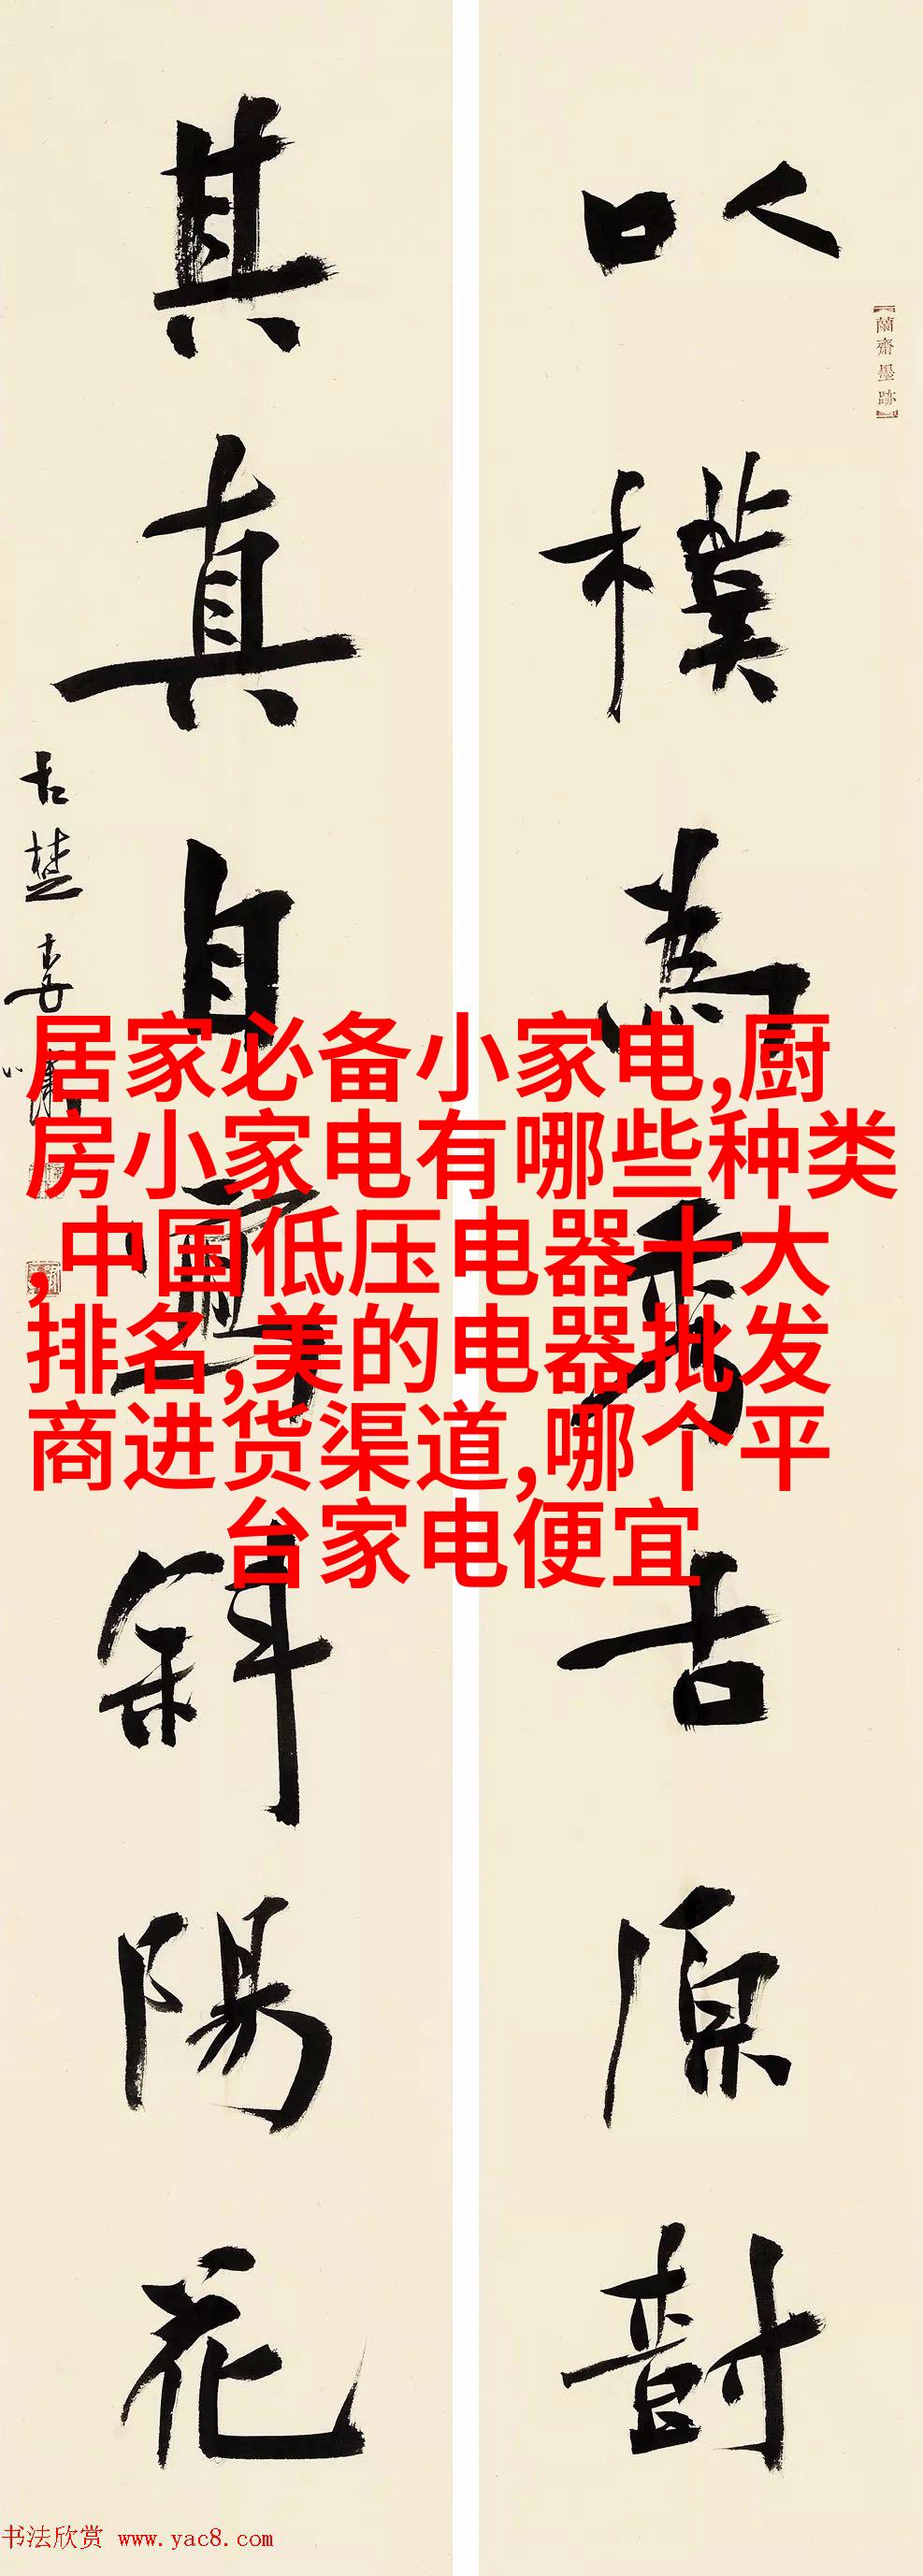 以樸為秀古原樹
其真自寫斜陽花
蘭齋墨跡
居家必备小家电,厨
房小家电有哪些种类
,中国低压电器十大
排名,美的电器批发
商进货渠道,哪个平
台家电便宜
书法欣赏 www.yac8.com